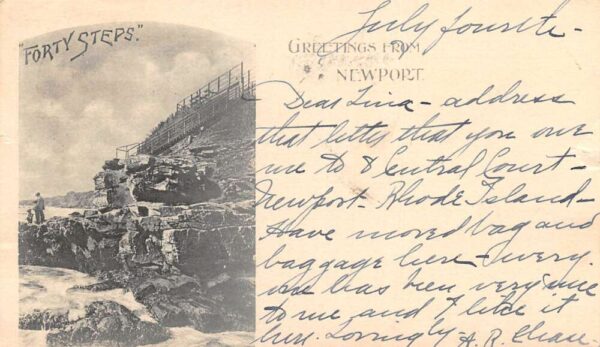 "FORTY STEPS."
July fourth-
GREETINGS FROM
NEWPORT.
Dear Tina - address
that letter that you owe
me to 8 Central Court -
Newport - Rhode Island -
Have moved bag and
baggage here - every
one has been very nice
to me and I like it
here. Lovingly A. R. Chase.